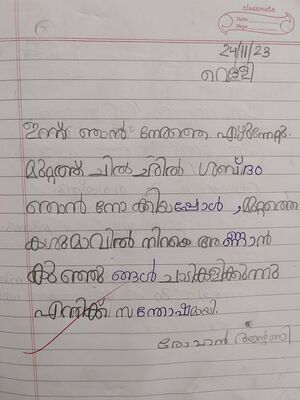 classmate
Date
Page
24/11/23
വെള്ളി
ഇന്ന് ഞാൻ നേരത്തെ എഴുന്നേറ്റു.
മുറ്റത്ത് ചിൽ ചിൽ ശബ്ദം
ഞാൻ നോക്കിയപ്പോൾ , മുറ്റത്തെ
കശുമാവിൽ നിറയെ അണ്ണാൻ
കുഞ്ഞുങ്ങൾ ചാടികളിക്കുന്നു
എനിക്ക് സന്തോഷമായി.
രോഹൻ ആന്റണി